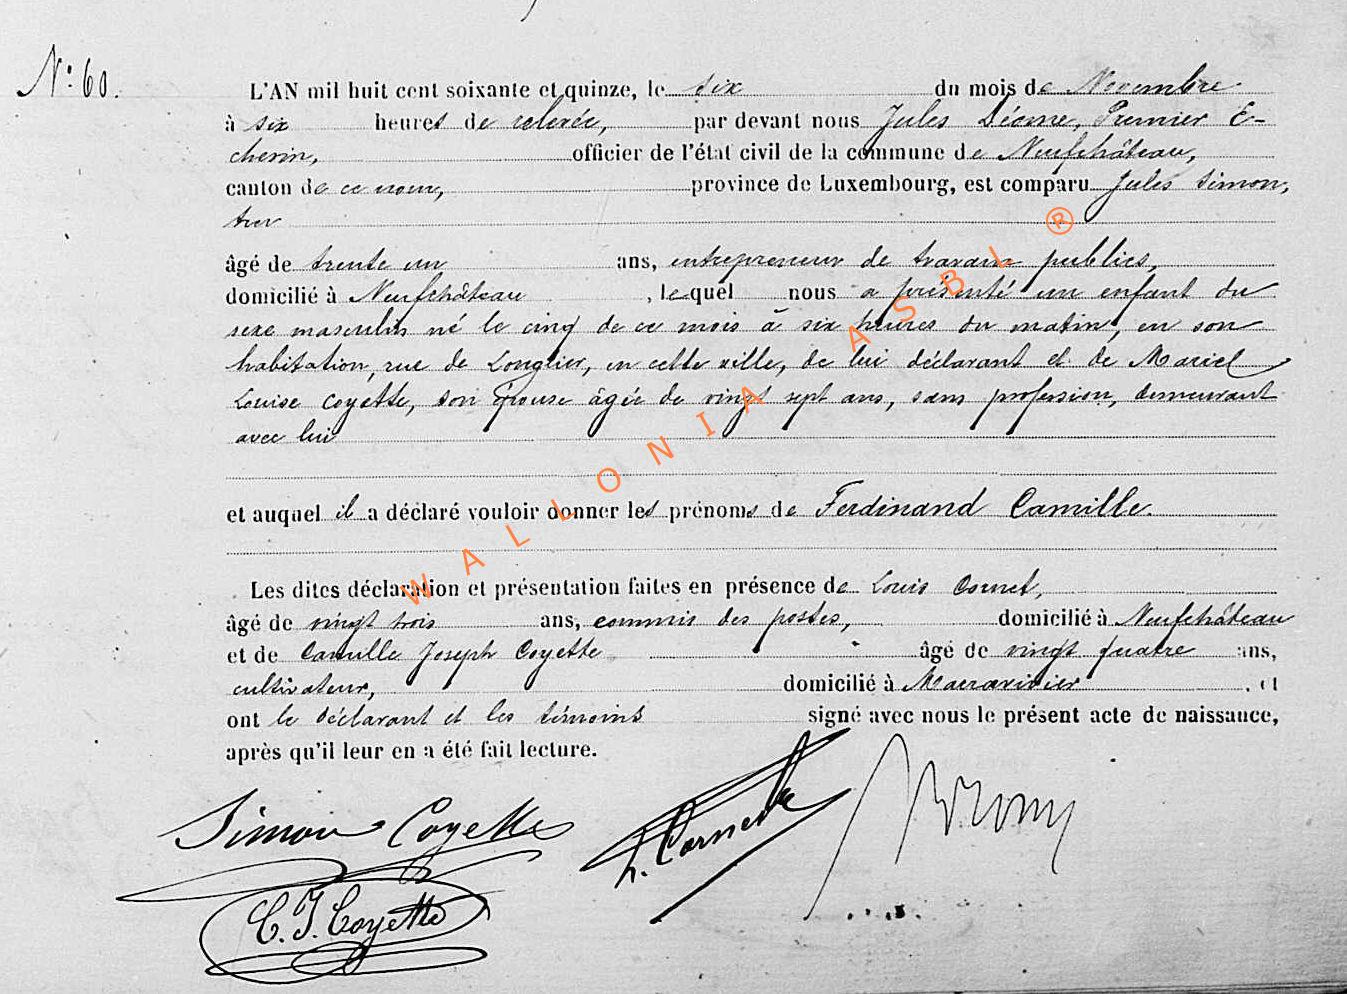 N° 60.
L'AN mil huit cent soixante et quinze, le six du mois de Novembre
à six heures de relevée, par devant nous Jules Déome, Premier E-
chevin, officier de l'état civil de la commune de Neufchâteau,
canton de ce nom, province de Luxembourg, est comparu Jules Simon,
âgé de trente un ans, entrepreneur de travaux publics,
domicilié à Neufchâteau, lequel nous a présenté un enfant du
sexe masculin né le cinq de ce mois à six heures du matin, en son
habitation, rue de Longlier, en cette ville, de lui déclarant et de Marie
Louise Coyette, son épouse âgée de vingt sept ans, sans profession, demeurant
avec lui
et auquel il a déclaré vouloir donner les prénoms de Ferdinand Camille.
Les dites déclaration et présentation faites en présence de Louis Cornet,
âgé de vingt trois ans, commis des postes, domicilié à Neufchâteau
et de Camille Joseph Coyette âgé de vingt quatre ans,
cultivateur, domicilié à , et
ont le déclarant et les témoins signé avec nous le présent acte de naissance,
après qu'il leur en a été fait lecture.
Simon Coyette
L. Cornet
C. J. Coyette
WALLONIA ASBL ®